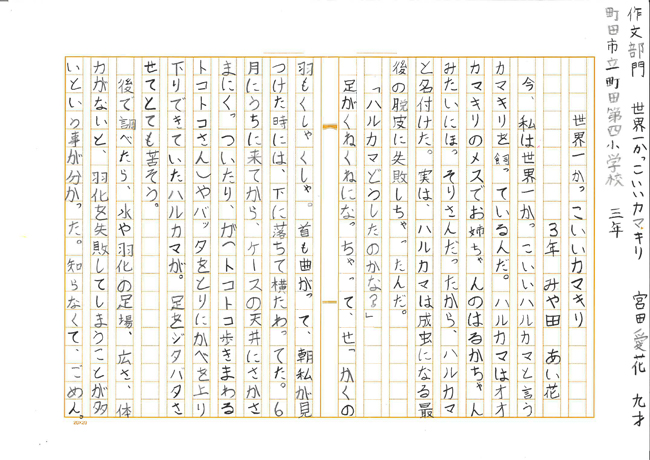 作文部門　世界一かっこいいカマキリ　宮田愛花　九才
町田市立町田第四小学校　三年
世界一かっこいいカマキリ
3年　みや田　あい花
今、私は世界一かっこいいハルカマと言う
カマキリを飼っているんだ。ハルカマはオオ
カマキリのメスでお姉ちゃんのはるかちゃん
みたいにほっそりさんだったから、ハルカマ
と名付けた。実は、ハルカマは成虫になる最
後の脱皮に失敗しちゃったんだ。
「ハルカマどうしたのかな?」
足がくねくねになっちゃって、せっかくの
羽もくしゃくしゃ。首も曲がって、朝私が見
つけた時には、下に落ちて横たわってた。6
月にうちに来てから、ケースの天井にさかさ
まにくっついたり、かべトコトコ歩きまわる
トコトコさん)やバッタをとりにかべを上り
下りできていたハルカマが。足をジタバタさ
せてとても苦そう。
後で調べたら、水や羽化の足場、広さ、体
力がないと、羽化を失敗してしまうことが多
いという事が分かった。知らなくて、ごめん。